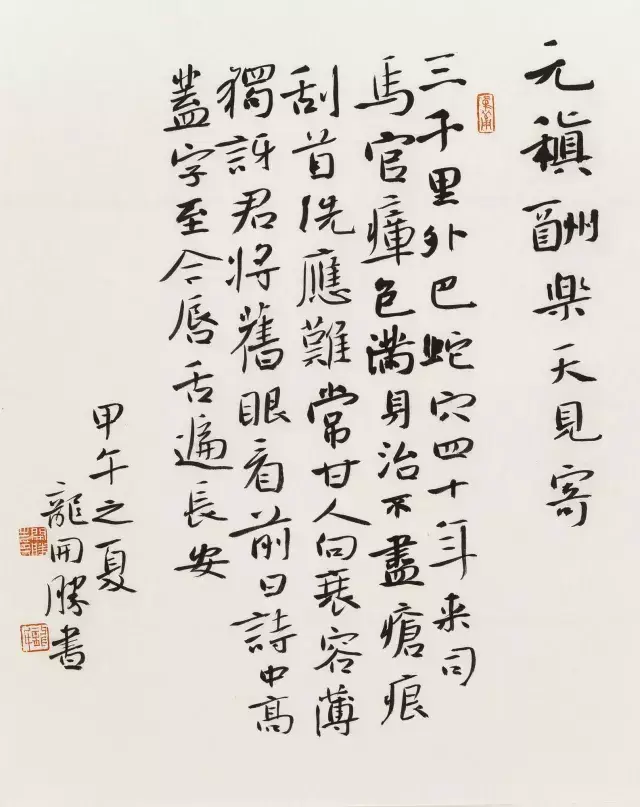 元稹酬楽天見寄
三千里外巴蛇穴四十年来司
馬官瘴色滿身治不盡瘡痕
刮首洗應難常甘人向衰容薄
獨訝君将舊眼看前日詩中高
蓋字至今唇舌遍長安
甲午之夏
龍開勝書